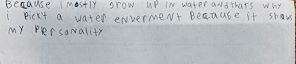 Because I mostly grow up in water and thats why
i pickt a water enverment Because it shows
my Personality